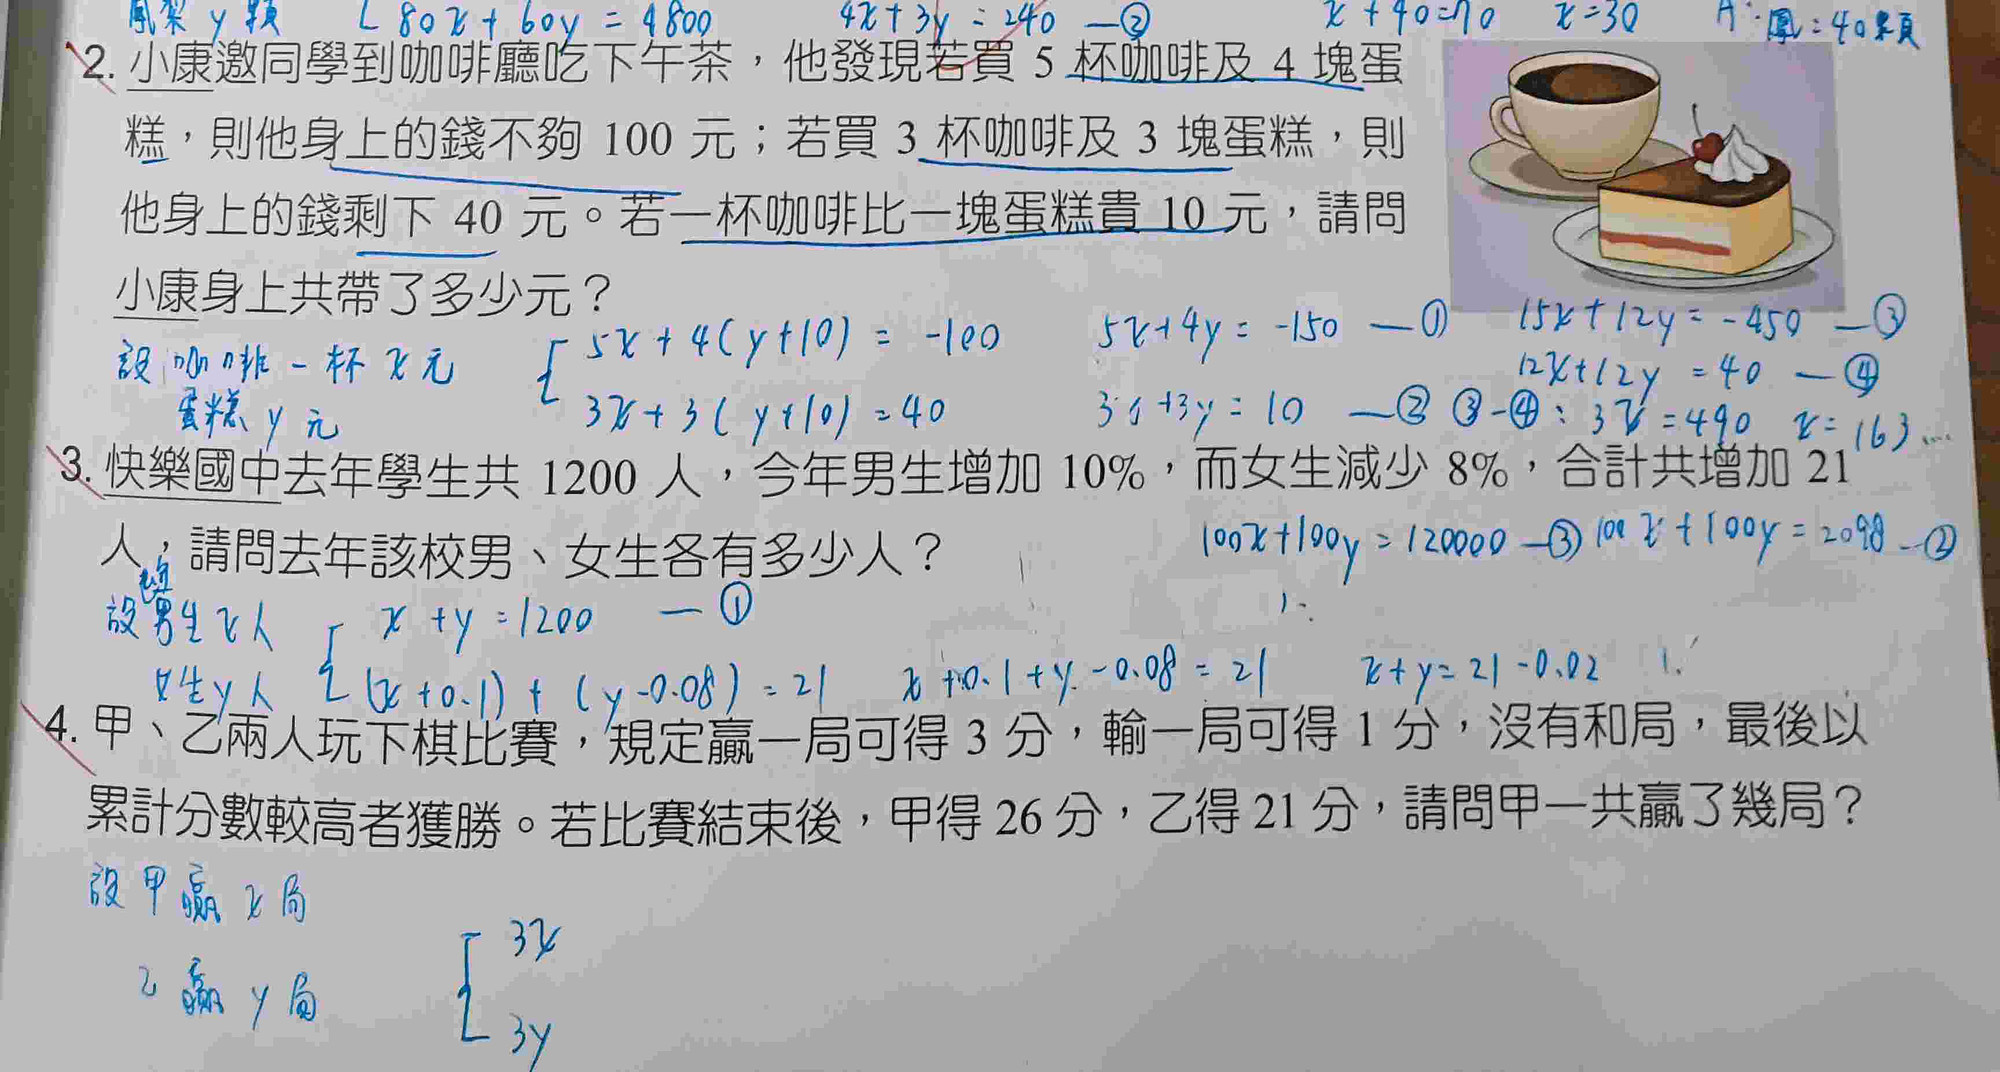 鳳梨 y 顆 80x + 60y = 4800 4x + 3y = 240 —② x + 40 = 70 x = 30 A: 鳳:40顆
2. 小康邀同學到咖啡廳吃下午茶，他發現若買 5 杯咖啡及 4 塊蛋
糕，則他身上的錢不夠 100 元；若買 3 杯咖啡及 3 塊蛋糕，則
他身上的錢剩下 40 元。若一杯咖啡比一塊蛋糕貴 10 元，請問
小康身上共帶了多少元？
設咖啡一杯 x 元 5x + 4(y+10) = -100 5x + 4y = -150 —① 15x + 12y = -450 —③
12x + 12y = 40 —④
蛋糕 y 元 3x + 3(y+10) = 40 3x + 3y = 10 —② ③-④: 3x = 490 x = 163...
3. 快樂國中去年學生共 1200 人，今年男生增加 10%，而女生減少 8%，合計共增加 21
人，請問去年該校男、女生各有多少人？
100x + 100y = 120000 —③ 100x + 100y = 2098 —②
設男生 x 人 x + y = 1200 —①
女生 y 人 (x + 0.1) + (y - 0.08) = 21 x + 0.1 + y - 0.08 = 21 x + y = 21 - 0.02
4. 甲、乙兩人玩下棋比賽，規定贏一局可得 3 分，輸一局可得 1 分，沒有和局，最後以
累計分數較高者獲勝。若比賽結束後，甲得 26 分，乙得 21 分，請問甲一共贏了幾局？
設甲贏 x 局
3x
乙贏 y 局
3y